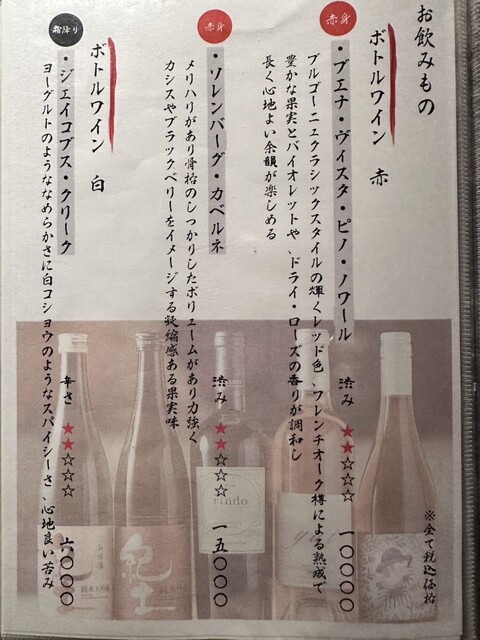 お飲みもの
※全て税込価格
ボトルワイン 赤
赤身
・ブエナ・ヴィスタ・ピノ・ノワール 渋み ★★☆☆☆ 一〇〇〇〇
ブルゴーニュクラシックスタイルの輝くレッド色、フレンチオーク樽による熟成で
豊かな果実とバイオレットや、ドライ・ローズの香りが調和し
長く心地よい余韻が楽しめる
赤身
・ソレンバーグ・カベルネ 渋み ★★☆☆☆ 一五〇〇〇
メリハリがあり骨格のしっかりしたボリュームがあり力強く
カシスやブラックベリーをイメージする凝縮感ある果実味
ボトルワイン 白
霜降り
・ジェイコブス・クリーク 辛さ ★★☆☆☆ 六〇〇〇
ヨーグルトのようななめらかさに白コショウのようなスパイシーさ、心地良い苦み
紀土
rindo